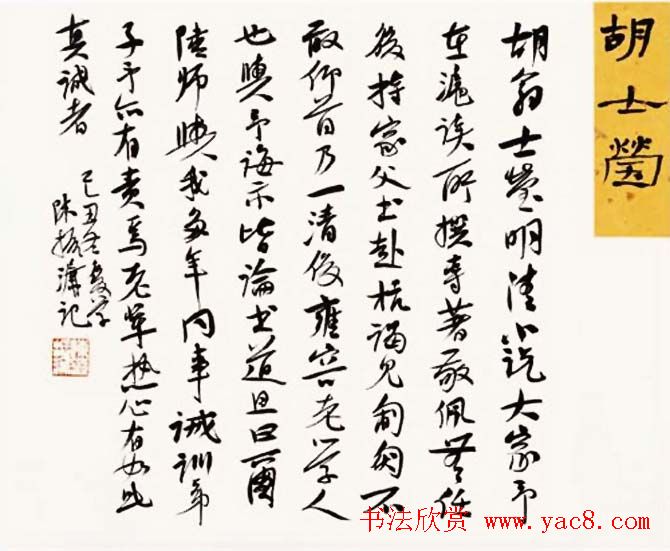 胡士瑩
胡翁士瑩明清小說大家予
在滬讀所撰專著敬佩無任
後持家父书赴杭謁見匍匐不
敢仰首乃一清俊雍容老學人
也與予誨示皆論书道且曰爾
陸師與我多年同事誡訓弟
子予亦有責焉老輩热心有如此
真誠者
己丑冬
陳振濂记
书法欣赏 www.yac8.com